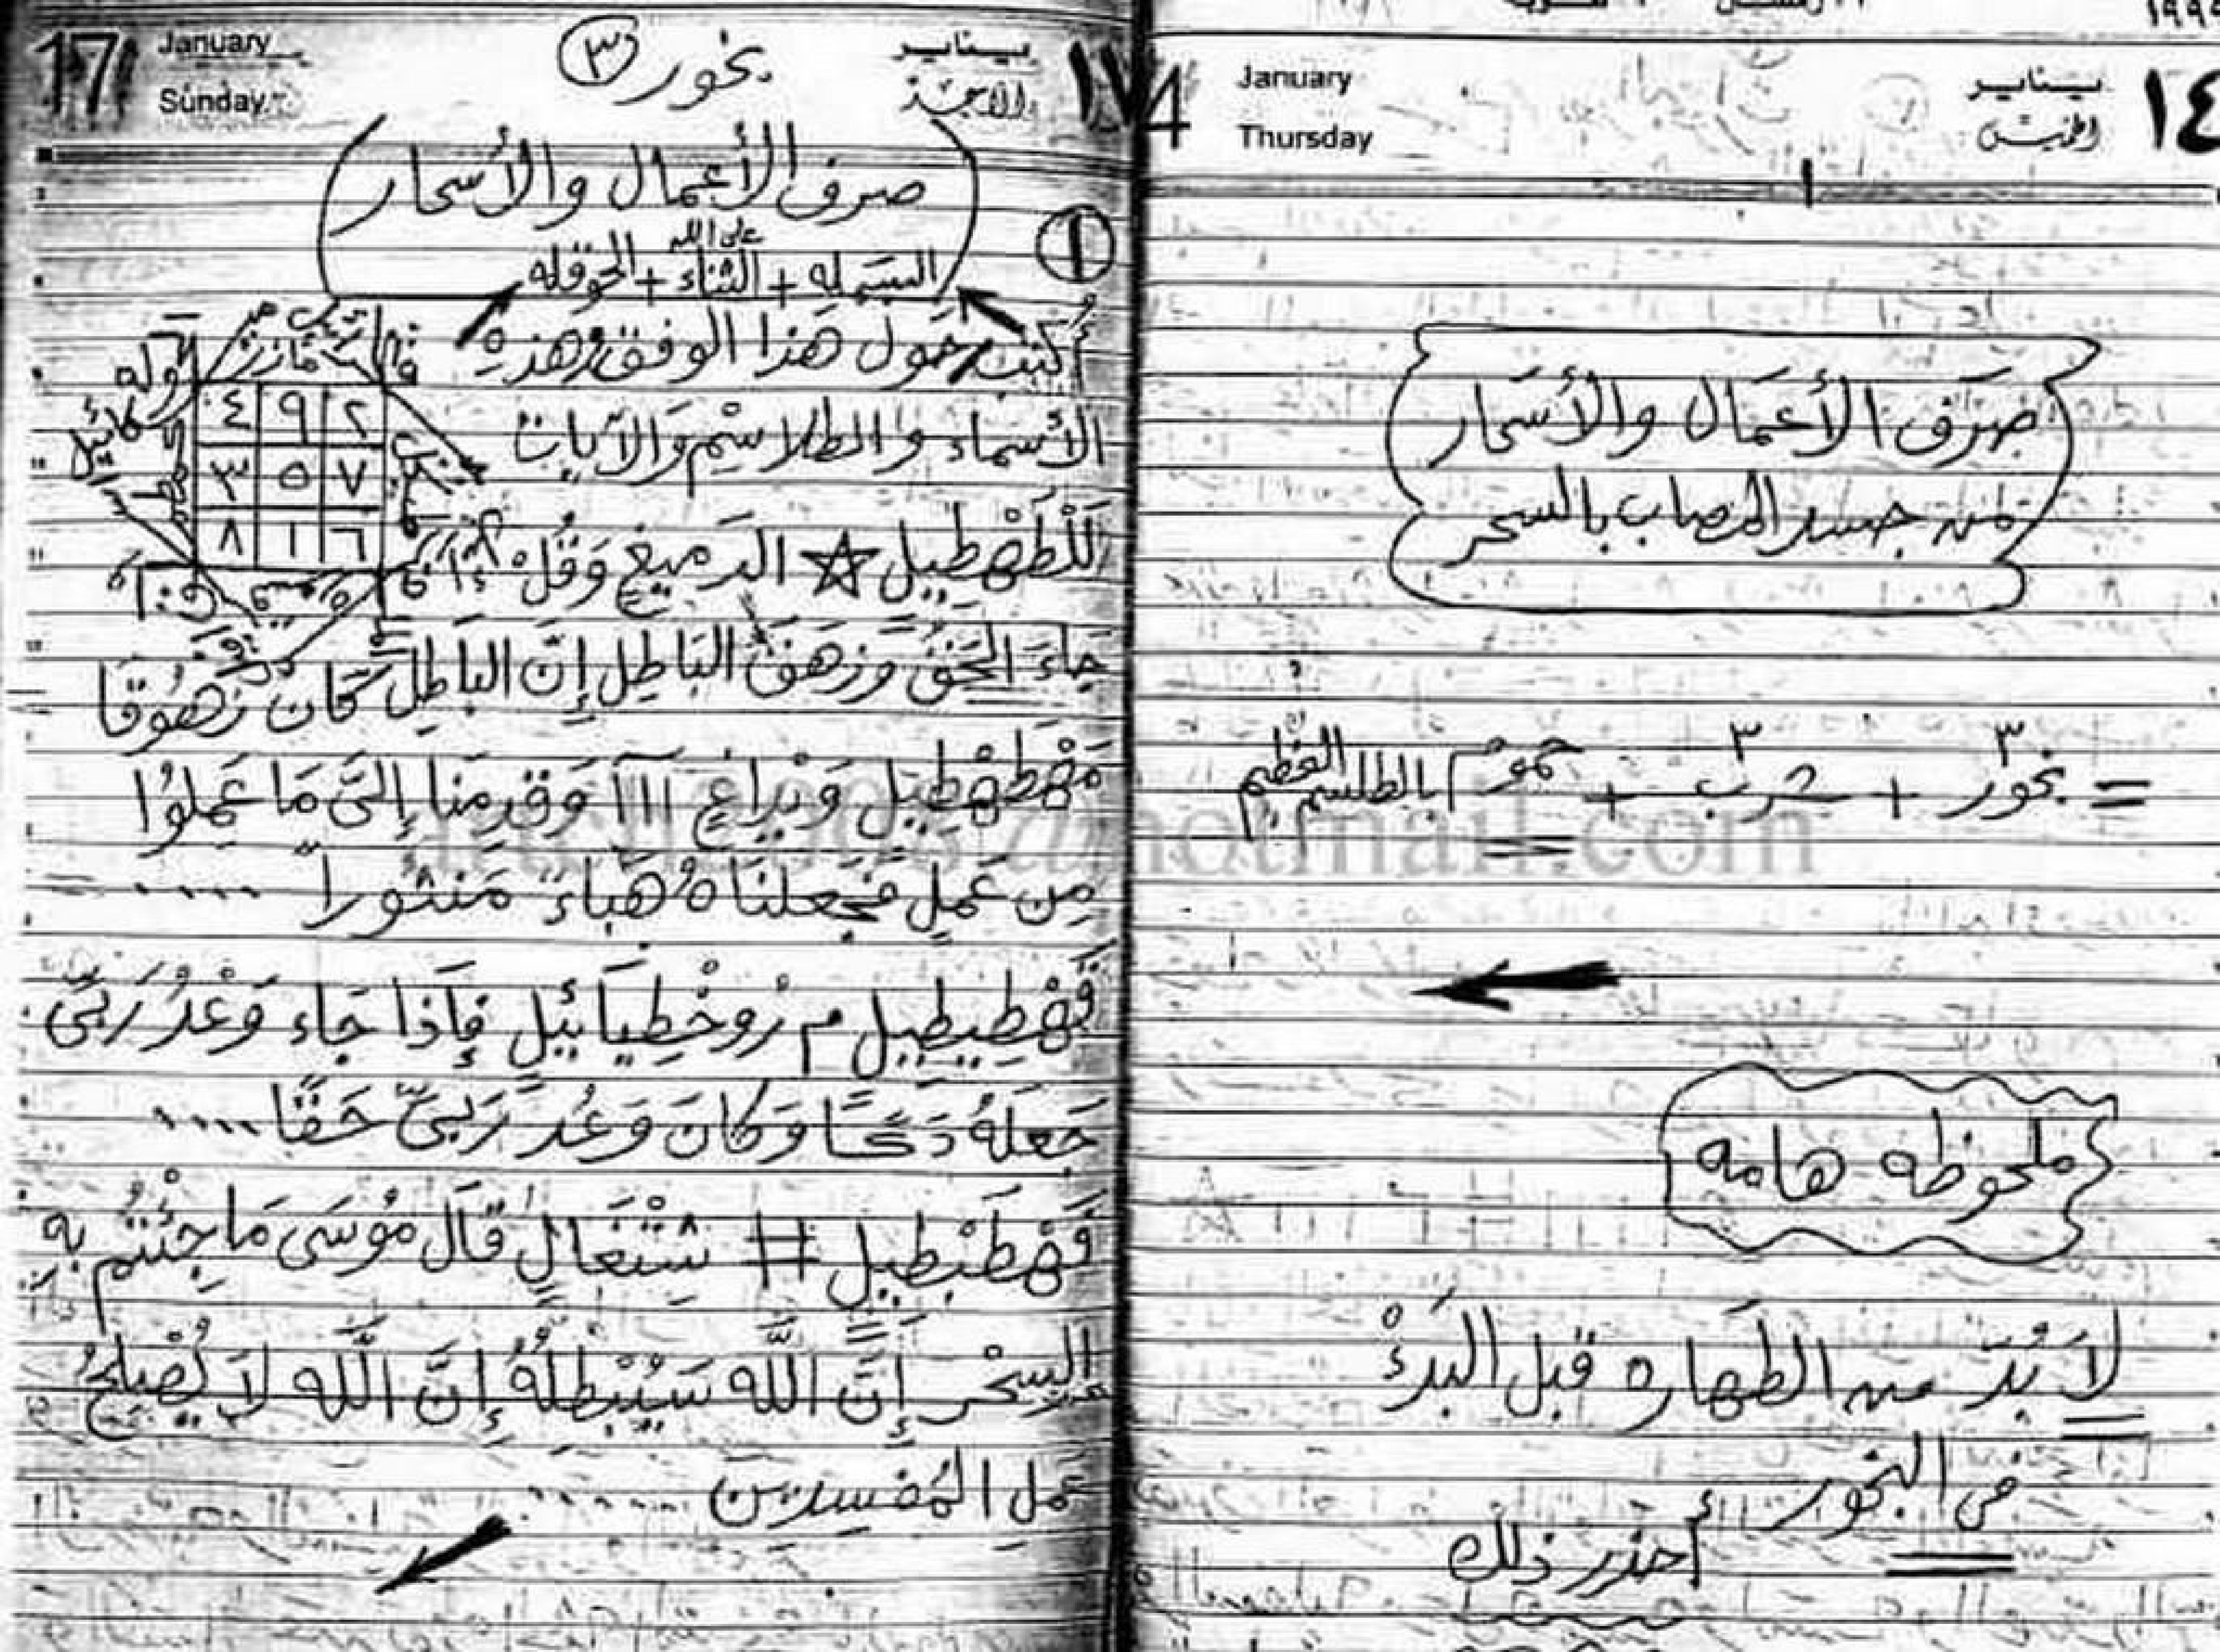 January
Thursday
يناير
الخميس
١٤
صَرف الأعمَال والأسَحار
من جسد المصاب بالسحر
= بخور ٣ + شرب ٣ + حموم بالطلسم العظيم
@hotmail.com
ملحوظه هامه
لَا بُدَّ من الطهاره قبل البَدءْ
فى البخور
أحذر ذلك
17
January
Sunday
بخور ٣
يناير
الأحد
١٧
صرف الأعمال والأسحار
البسمله + الثناء على الله + الحوقله
١
أُكتب حَول هذا الوفق هذهِ
الأسماء والطلاسِم وَالآيات
٤ ٩ ٢
٣ ٥ ٧
٨ ١ ٦
لَلْطَهْطِيلٍ ☆ الدَمِيغِ وَقُلْ
جَاءَ الحَقُ وَزهَقَ البَاطِل إِنَّ البَاطِلَ كَانَ زَهُوقَا
مَهْطَهْطِيلٍ وَبْرَاغٍ ١١١ وَقدِمنَا إِلىَ مَا عَمِلوُا
مِن عَمَلٍ فَجَعلنَاهُ هَبَاءً مَنثوراً .....
قَهْطِيطِيلٍ م رُوخْطِيَائيلٍ فَإِذا جَاء وَعْدُ رَبىّ
جَعلَهُ دَكًا وَكانَ وَعْدُ رَبىّ حَقًا ....
فَهْطَبْطِيلٍ # شَتْغَالٍ قَالَ مُوسَى مَا جِئْتُم بِهِ
السِحْر إِنَّ اللَّه سَيُبْطِلُهُ إِنَّ اللَّه لَا يُصْلِحُ
عَمل المُفسِدِين ......